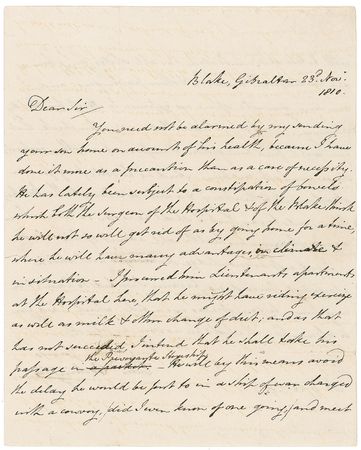 Blake, Gibraltar 23d. Nov.
1810.
Dear Sir/
You need not be alarmed by my sending
your son home on account of his health, because I have
done it more as a precaution than as a case of necessity.
He has lately been subject to a constipation of bowels
which both the Surgeon of the Hospital & of the Blake think
he will not so well get rid of as by going home for a time,
where he will have many advantages in climate &
in situation – I procured him Lieutenants apartments
at the Hospital here, that he might have riding exercise
as well as milk & other change of diet; and as that
has not succeeded I intend that he shall take his
the Troopship
passage in a packet – He will by this means avoid
the delay he would be put to in a ship of war charged
with a convoy, (did I even know of one going,) and meet